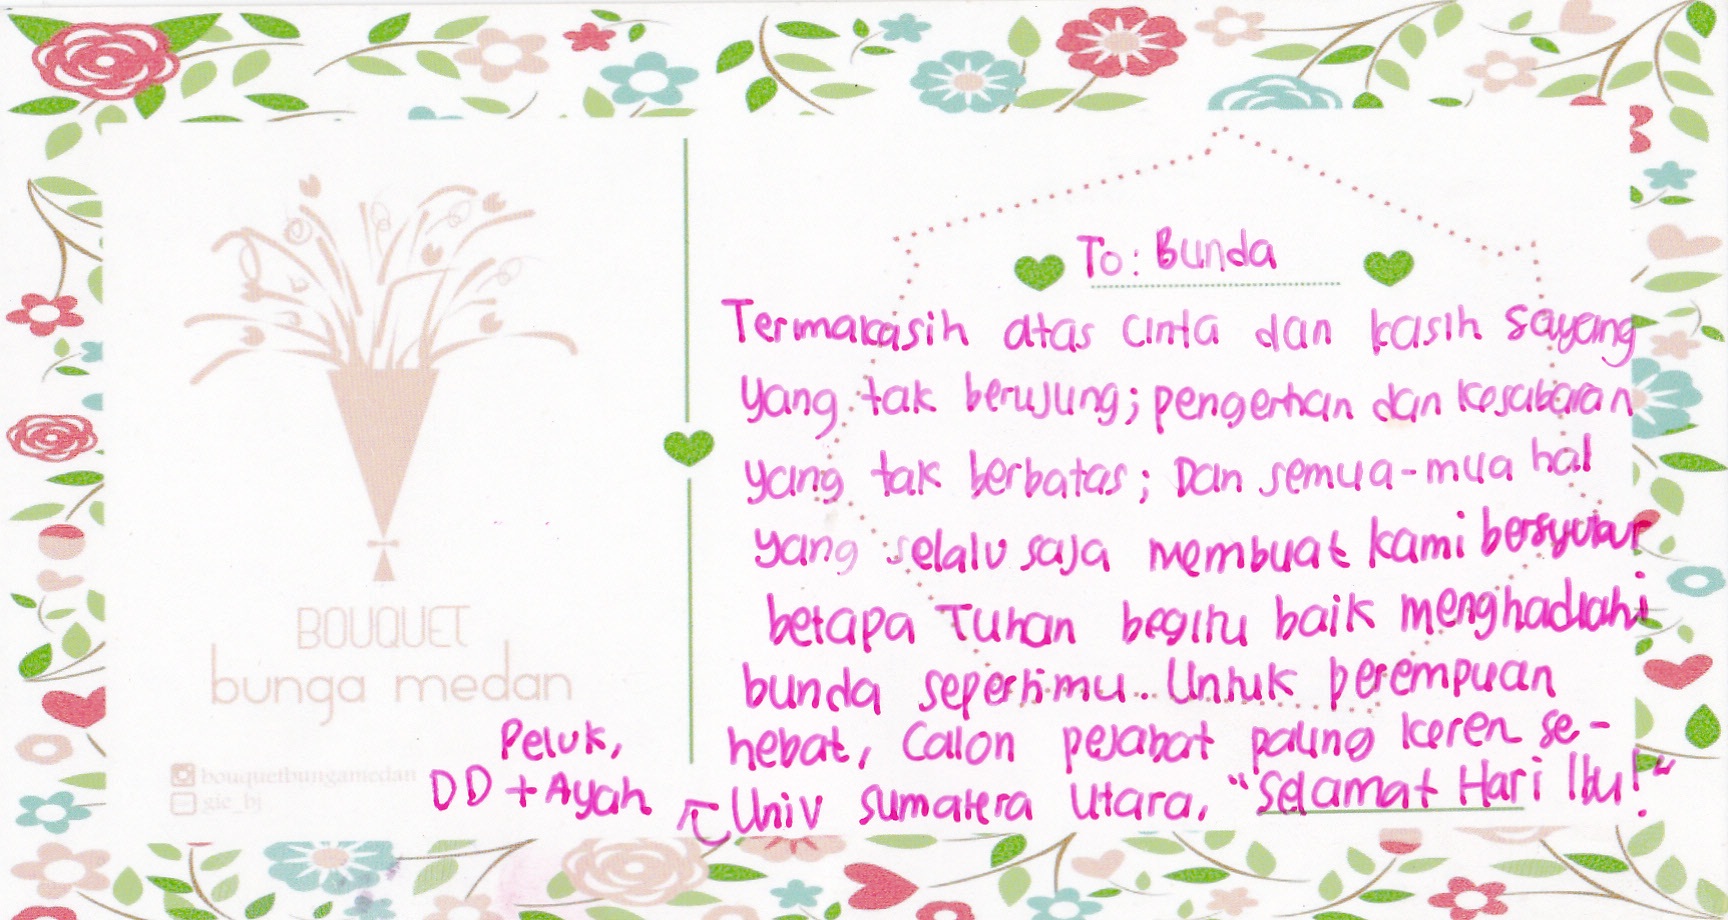 To: Bunda
Termakasih atas cinta dan kasih sayang
yang tak berujung; pengertian dan kesabaran
yang tak berbatas; Dan semua-mua hal
yang selalu saja membuat kami bersyukur
betapa Tuhan begitu baik menghadiahi
bunda sepertimu.. Untuk perempuan
hebat, Calon pejabat paling keren se-
Univ Sumatera Utara, "Selamat Hari Ibu!"
BOUQUET
bunga medan
bouquetbungamedan
gie_bj
Peluk,
DD + Ayah